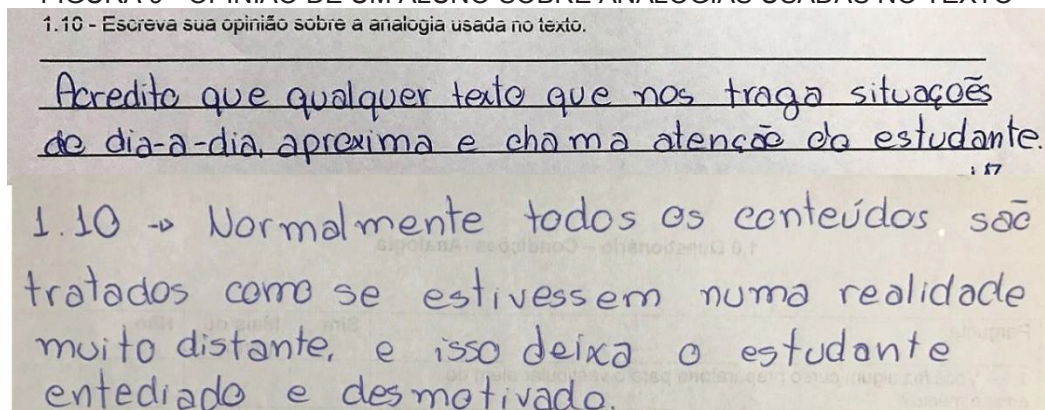 1.10 - Escreva sua opinião sobre a analogia usada no texto.
Acredito que qualquer texto que nos traga situações
do dia-a-dia, aproxima e chama atenção do estudante.
1.10 → Normalmente todos os conteúdos são
tratados como se estivessem numa realidade
muito distante, e isso deixa o estudante
entediado e desmotivado.